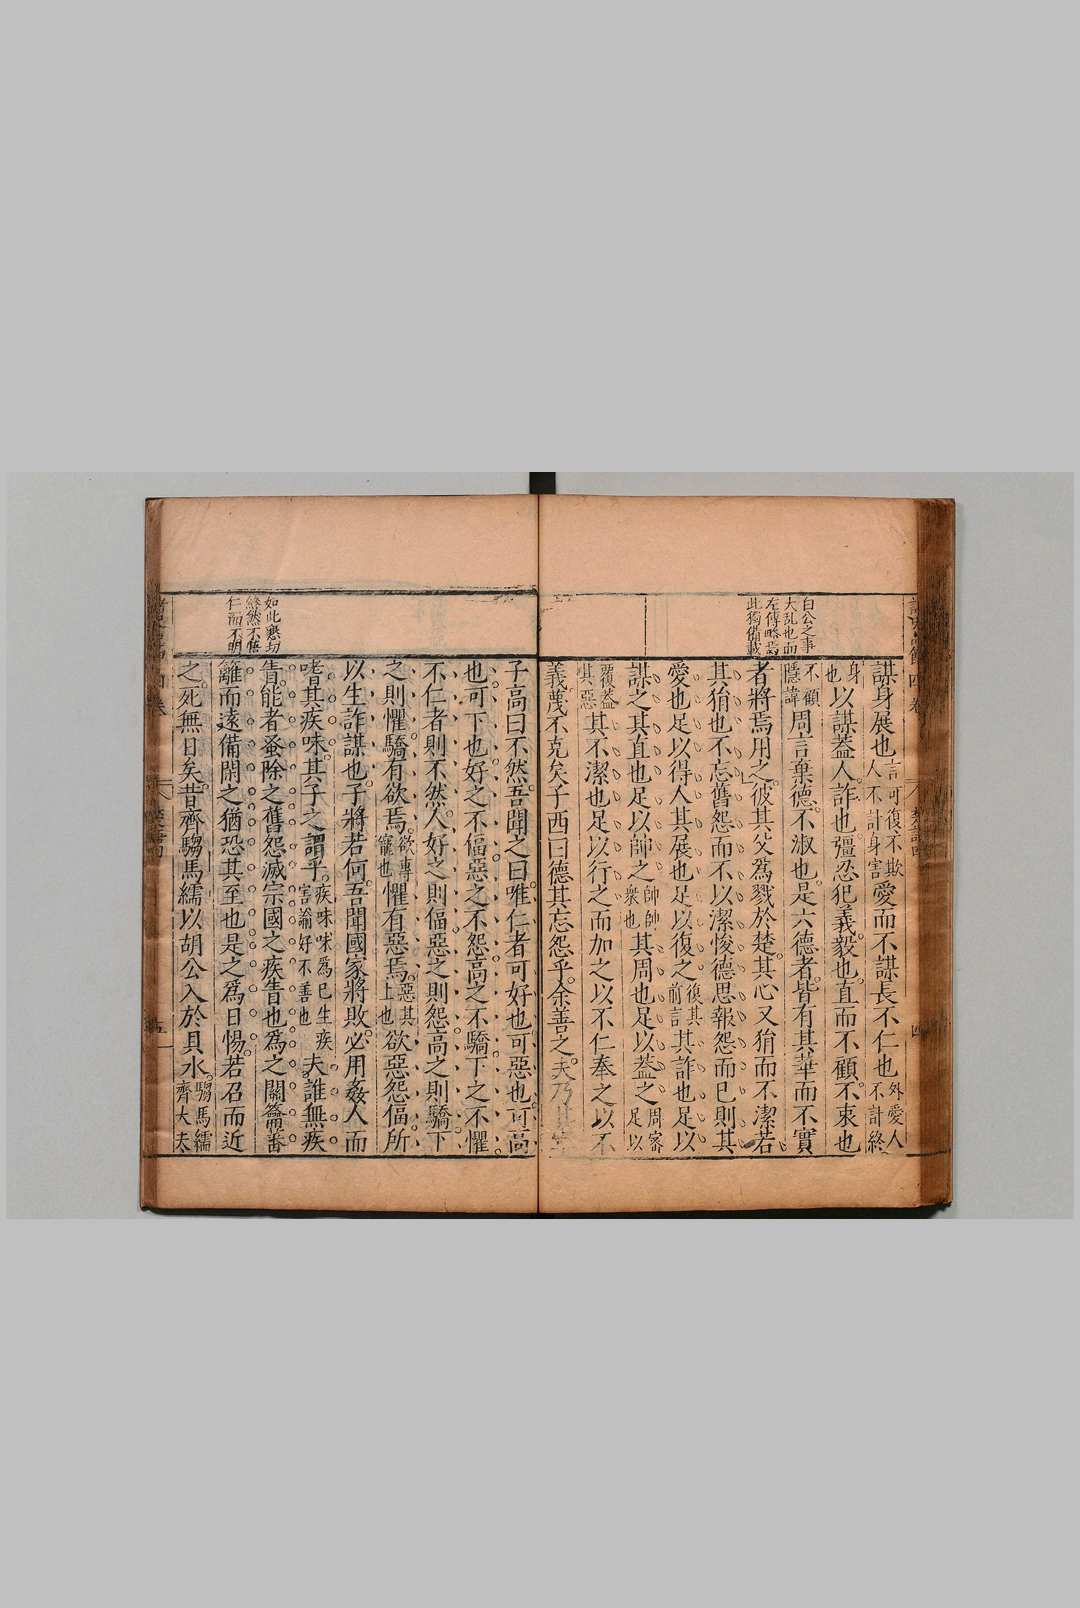 白公之事
大乱也而
左傳略焉
此獨備載
謀身展也言可復不欺人不計身害愛而不謀長不仁也外愛人不計終
身也以謀蓋人詐也彊忍犯義毅也直而不顧不衷也
不顧隱諱周言棄德不淑也是六德者皆有其華而不實
者將焉用之彼其父爲戮於楚其心又狷而不潔若
其狷也不忘舊怨而不以潔悛德思報怨而已則其
愛也足以得人其展也足以復之復其前言其詐也足以
謀之其直也足以帥之帥帥衆也其周也足以蓋之周審足以
覆蓋其惡其不潔也足以行之而加之以不仁奉之以不
義蔑不克矣子西曰德其忘怨乎余善之夫乃其寧
如此懇切
終然不悟
仁而不明
子高曰不然吾聞之曰唯仁者可好也可惡也可高
也可下也好之不偪惡之不怨高之不驕下之不懼
不仁者則不然人好之則偪惡之則怨高之則驕下
之則懼驕有欲焉欲專寵也懼有惡焉惡其上也欲惡怨偪所
以生詐謀也子將若何吾聞國家將敗必用姦人而
嗜其疾味其子之謂乎疾味味爲已生疾害諭好不善也夫誰無疾
眚能者蚤除之舊怨滅宗國之疾眚也爲之關籥蕃
籬而遠備閑之猶恐其至也是之爲日惕若召而近
之死無日矣昔齊騶馬繻以胡公入於具水騶馬繻齊大夫